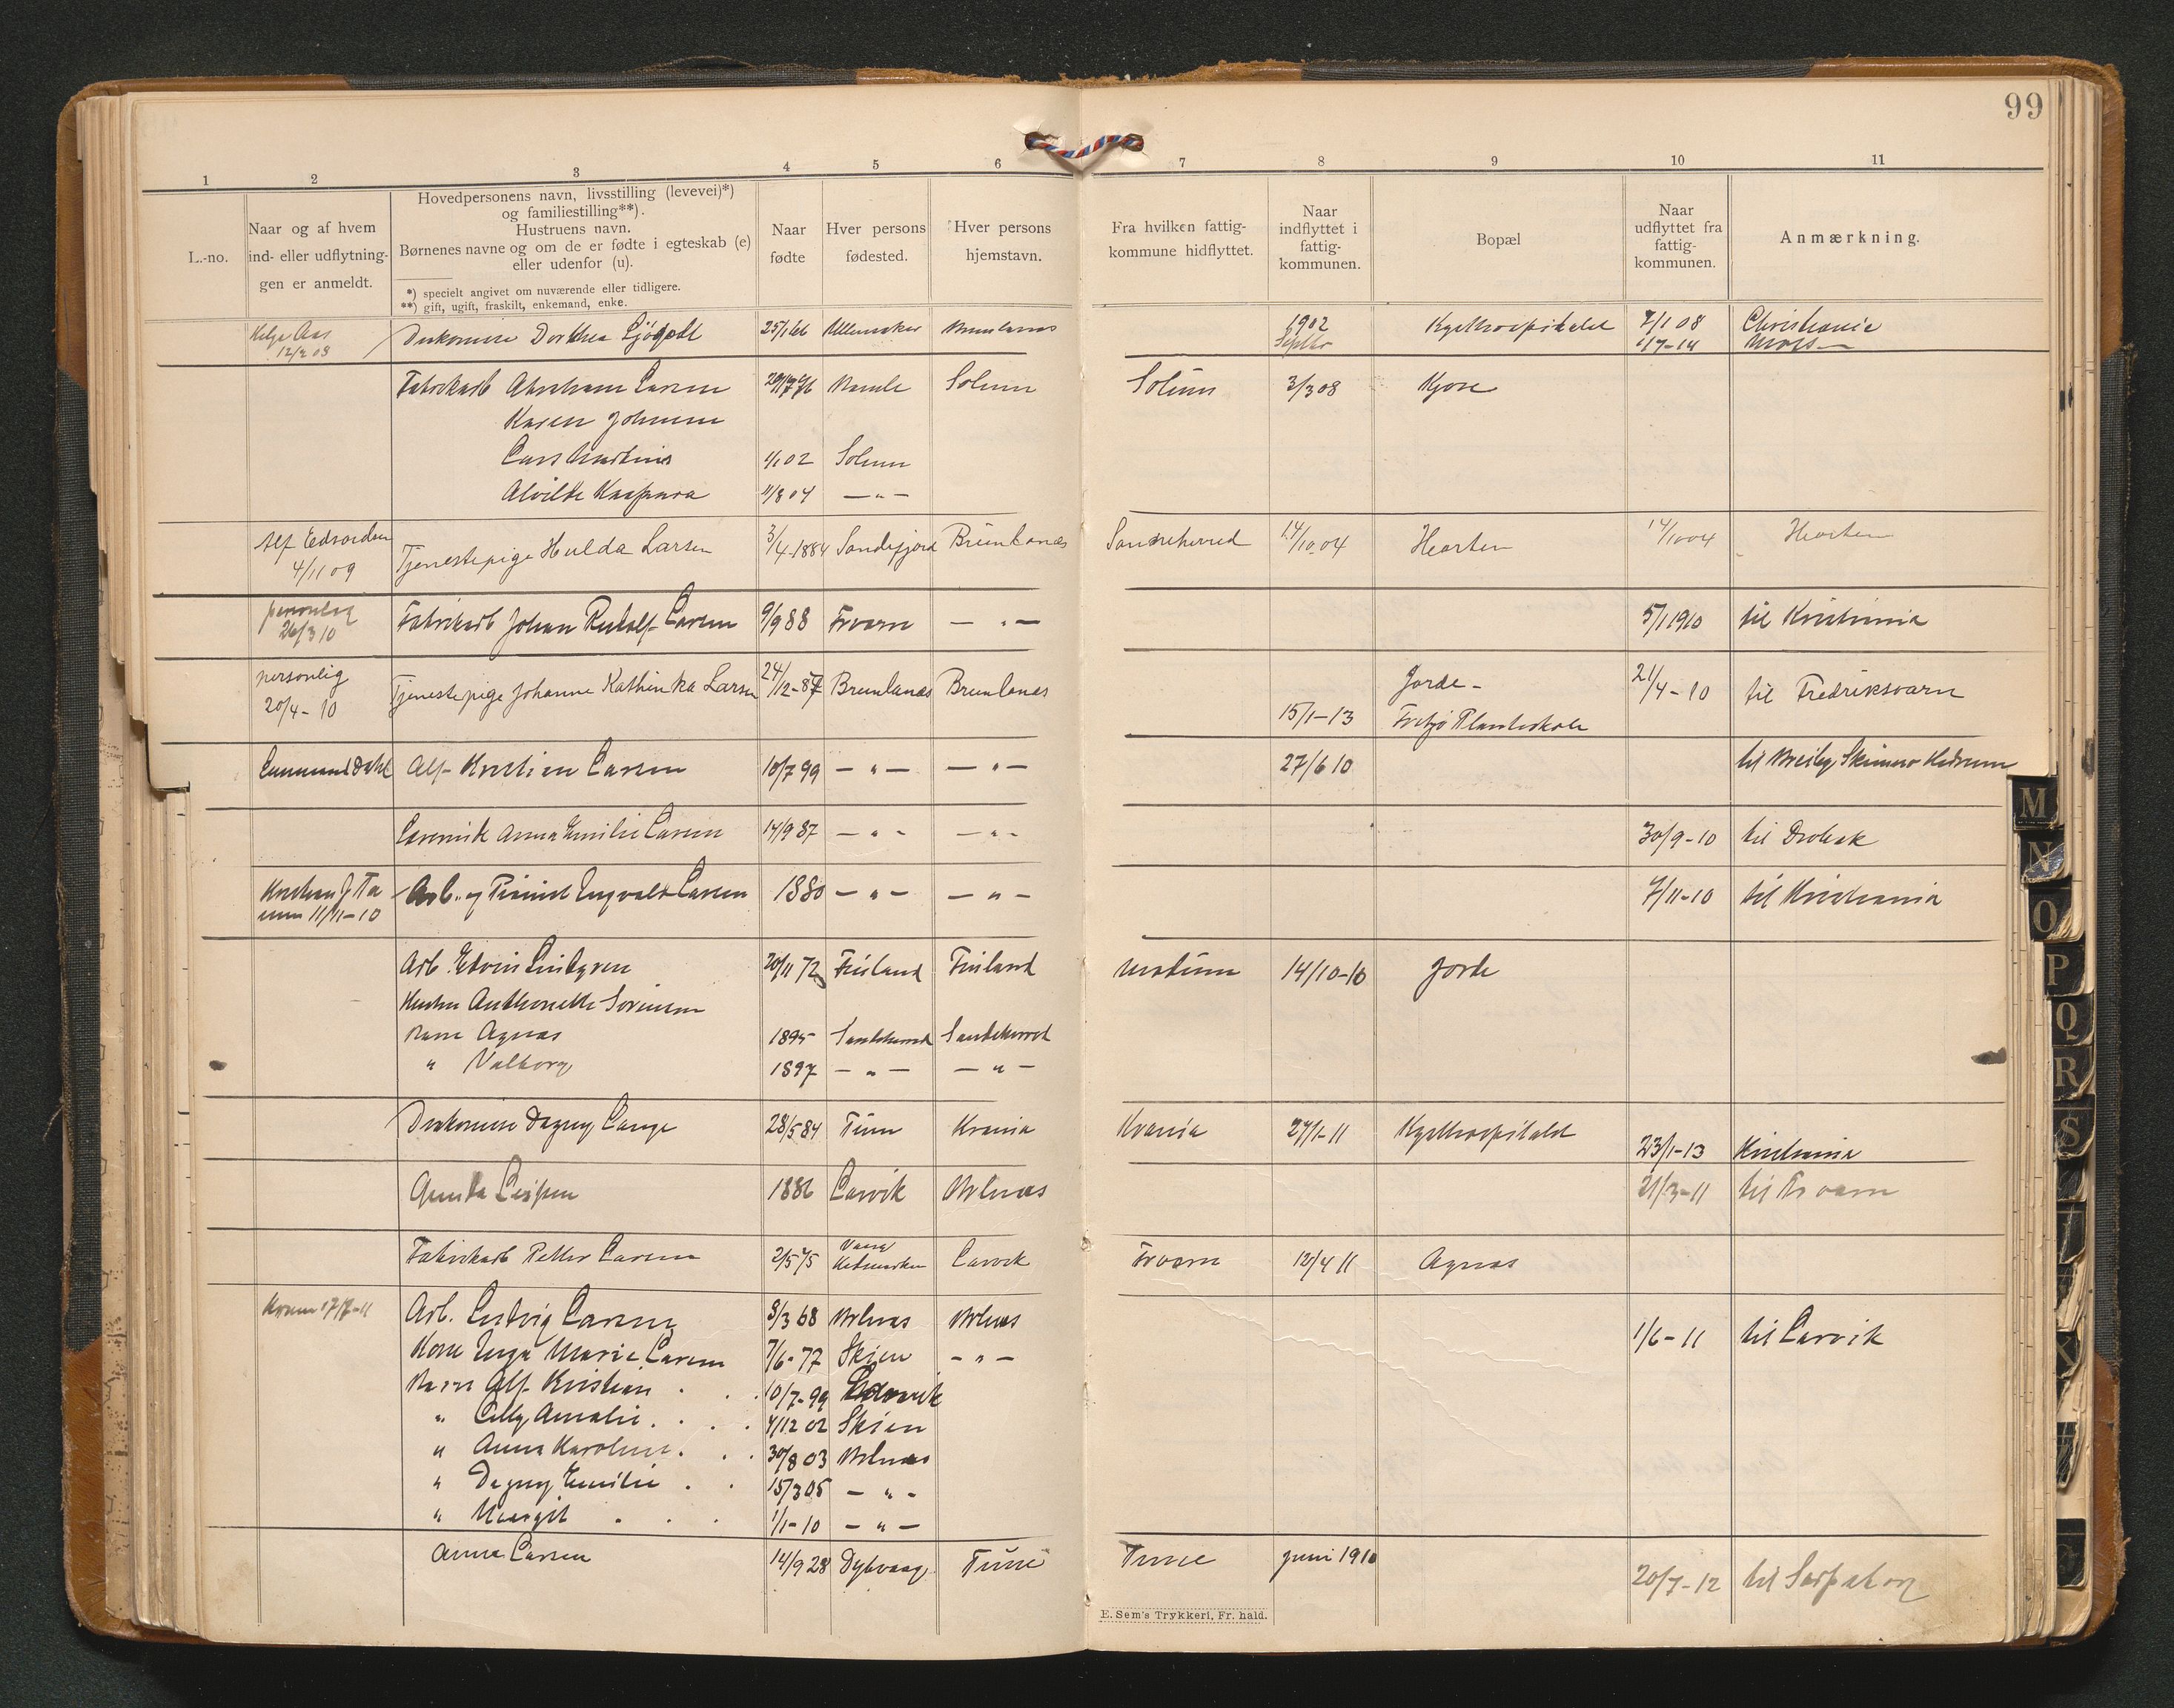 99
1 2 3 4 5 6 7 8 9 10 11
L.-no.
Naar og af hvem
ind- eller udflytnin-
gen er anmeldt.
Hovedpersonens navn, livsstilling (levevei)*)
og familiestilling**).
Hustruens navn.
Børnenes navne og om de er fødte i egteskab (e)
eller udenfor (u).
*) specielt angivet om nuværende eller tidligere.
**) gift, ugift, fraskilt, enkemand, enke.
Naar
fødte
Hver persons
fødested.
Hver persons
hjemstavn.
Fra hvilken fattig-
kommune hidflyttet.
Naar
indflyttet i
fattig-
kommunen.
Bopæl
Naar
udflyttet fra
fattig-
kommunen.
Anmærkning.
Helga Aas Diakonisse Dorthea 25/1 66 Ullensaker Brunlanæs 1902 Kysthospitalet 7/1 08 Christiania
12/2 08 Septbr 1/7-14 Moss
Fabrikarb Abraham Larsen Bamle Solum Solum 3/3 08 Kjose
Karen Johnsen
Lars Martinius 4/1 02 Solum
Alvilde Kaspara 11/8 04 — " —
Alf Edvardsen Tjenestepige Hulda Larsen 3/4-1884 Sandefjord Brunlanæs Sandeherred 14/10 04 Horten 14/10 04 Horten
4/11 09
personlig Fabrikarb Johan Rudolf Larsen 9/9 88 Frværn — " — 5/1 1910 til Kristiania
26/3 10
personlig Tjenestepige Johanne Kathinka Larsen 24/12-87 Brunlanæs Brunlanæs Jorde - 21/4-10 til Fredriksværn
20/4-10 15/1-13 Fritzø Planteskole
Emmanuel Dahl Alf Kristian Larsen 10/7 99 — " — — " — 27/6 10 til Hedrum
Anna Emilie Larsen 14/9 87 — " — — " — 30/9-10 til Drøbak
Kristian J Ta Arb. og Pianist Ingvald Larsen 1880 — " — — " — 7/11-10 til Kristiania
num 11/11-10
Arb. Edvin Lindgren 20/11 72 Finland Finland Modum 14/10-10 Jorde
Hustru Anthonette Sørensen
Barn Agnes 1895 Sandeherred Sandeherred
" Valborg 1897 — " — — " —
Diakonisse Dagny Lange 28/5 84 Krania Krania 27/1-11 Kysthospitalet 23/1-13 Kristiania
Gunda 1886 Larvik Brlnæs 21/3-11 til Frværn
Fabrikarb Petter Larsen 2/5 75 Larvik Frværn 12/4 11 Agnes
17/7-11 Arb. Ludvig Larsen 8/3 68 Brlnæs Brlnæs 1/6-11 til Larvik
Kone Inga Marie Larsen 7/6-77 Skien — " —
Barn Alf Kristian . . 10/7-99
" Lilly Amalie . . . 4/12 02 Skien
" Anna Karoline . . . 30/8 03 Brlnæs
" Dagny Emilie . . 15/3 05 — " —
" Margit . . . 1/1-10 — " —
Anna Larsen 14/9 28 Dybvaag Tune Tune juni 1910 20/7-12 til Sarpsborg
E. Sem's Trykkeri, Fr. hald.
M
N
O
P
Q
R
S